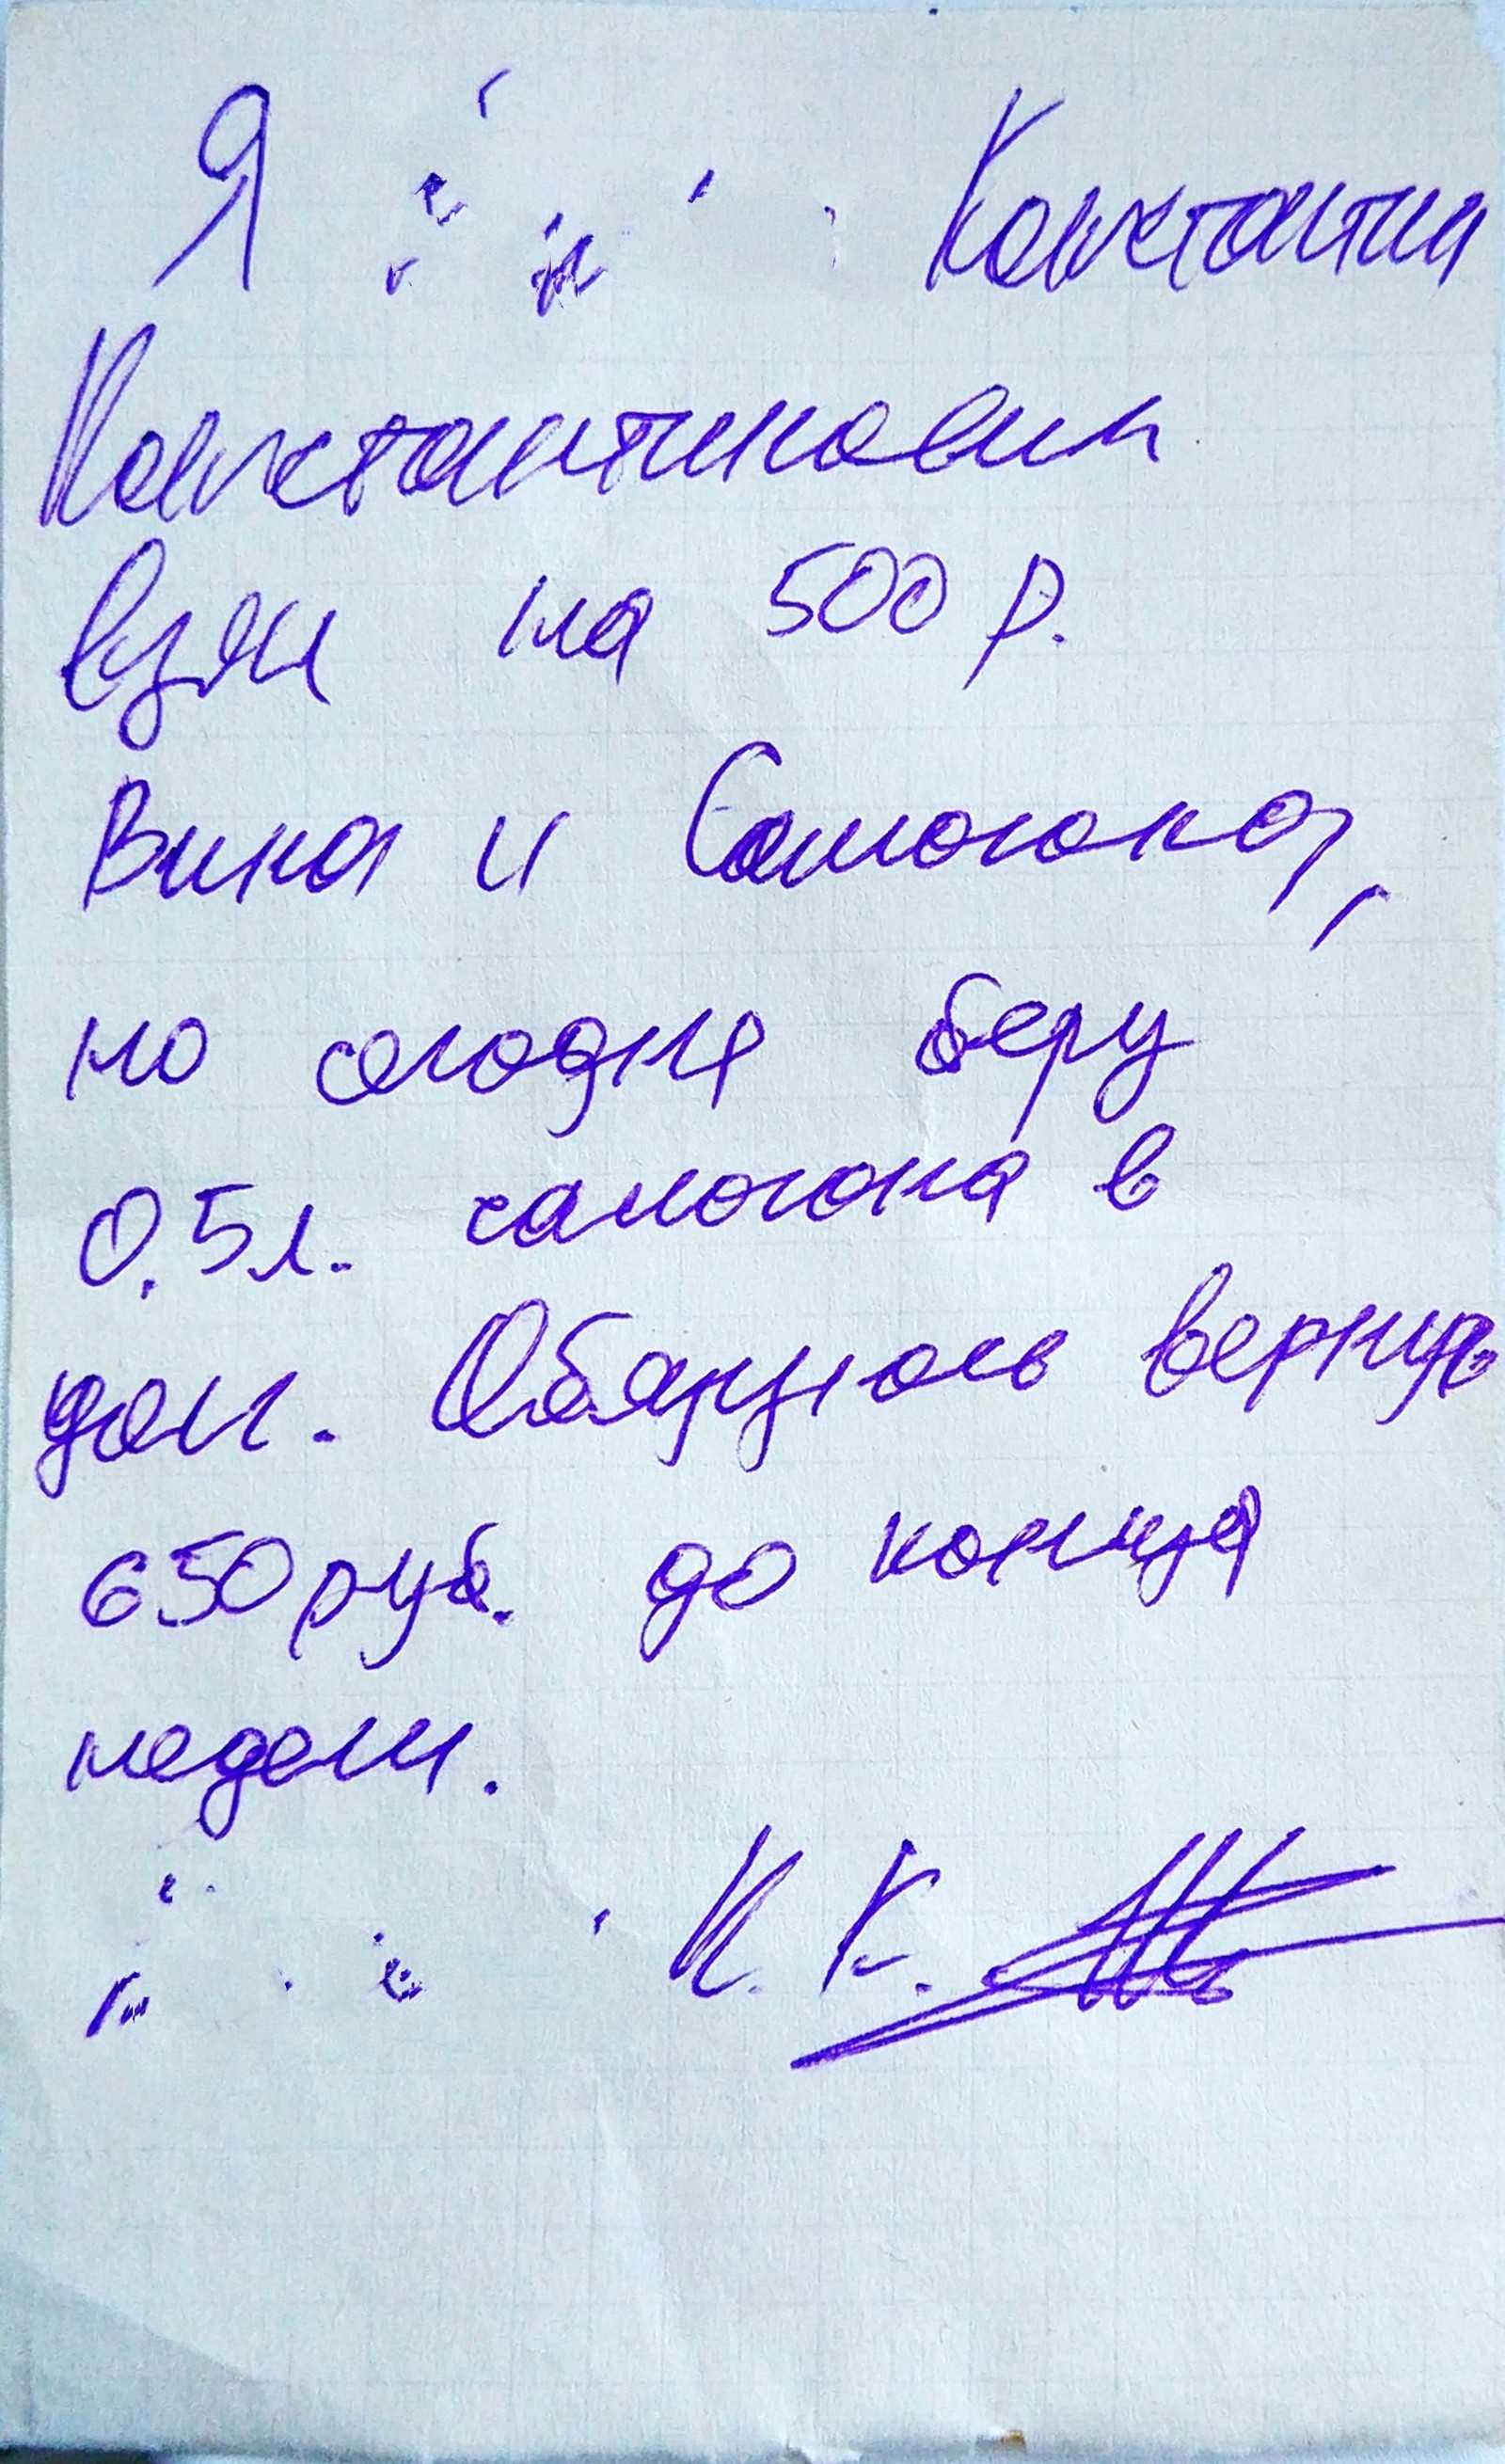 Я Константин
Константинович
взял на 500 р.
Вина и Самогона,
но сегодня беру
0,5 л. самогона в
дом. Обязуюсь вернуть
650 руб. до конца
недели.
К. К.